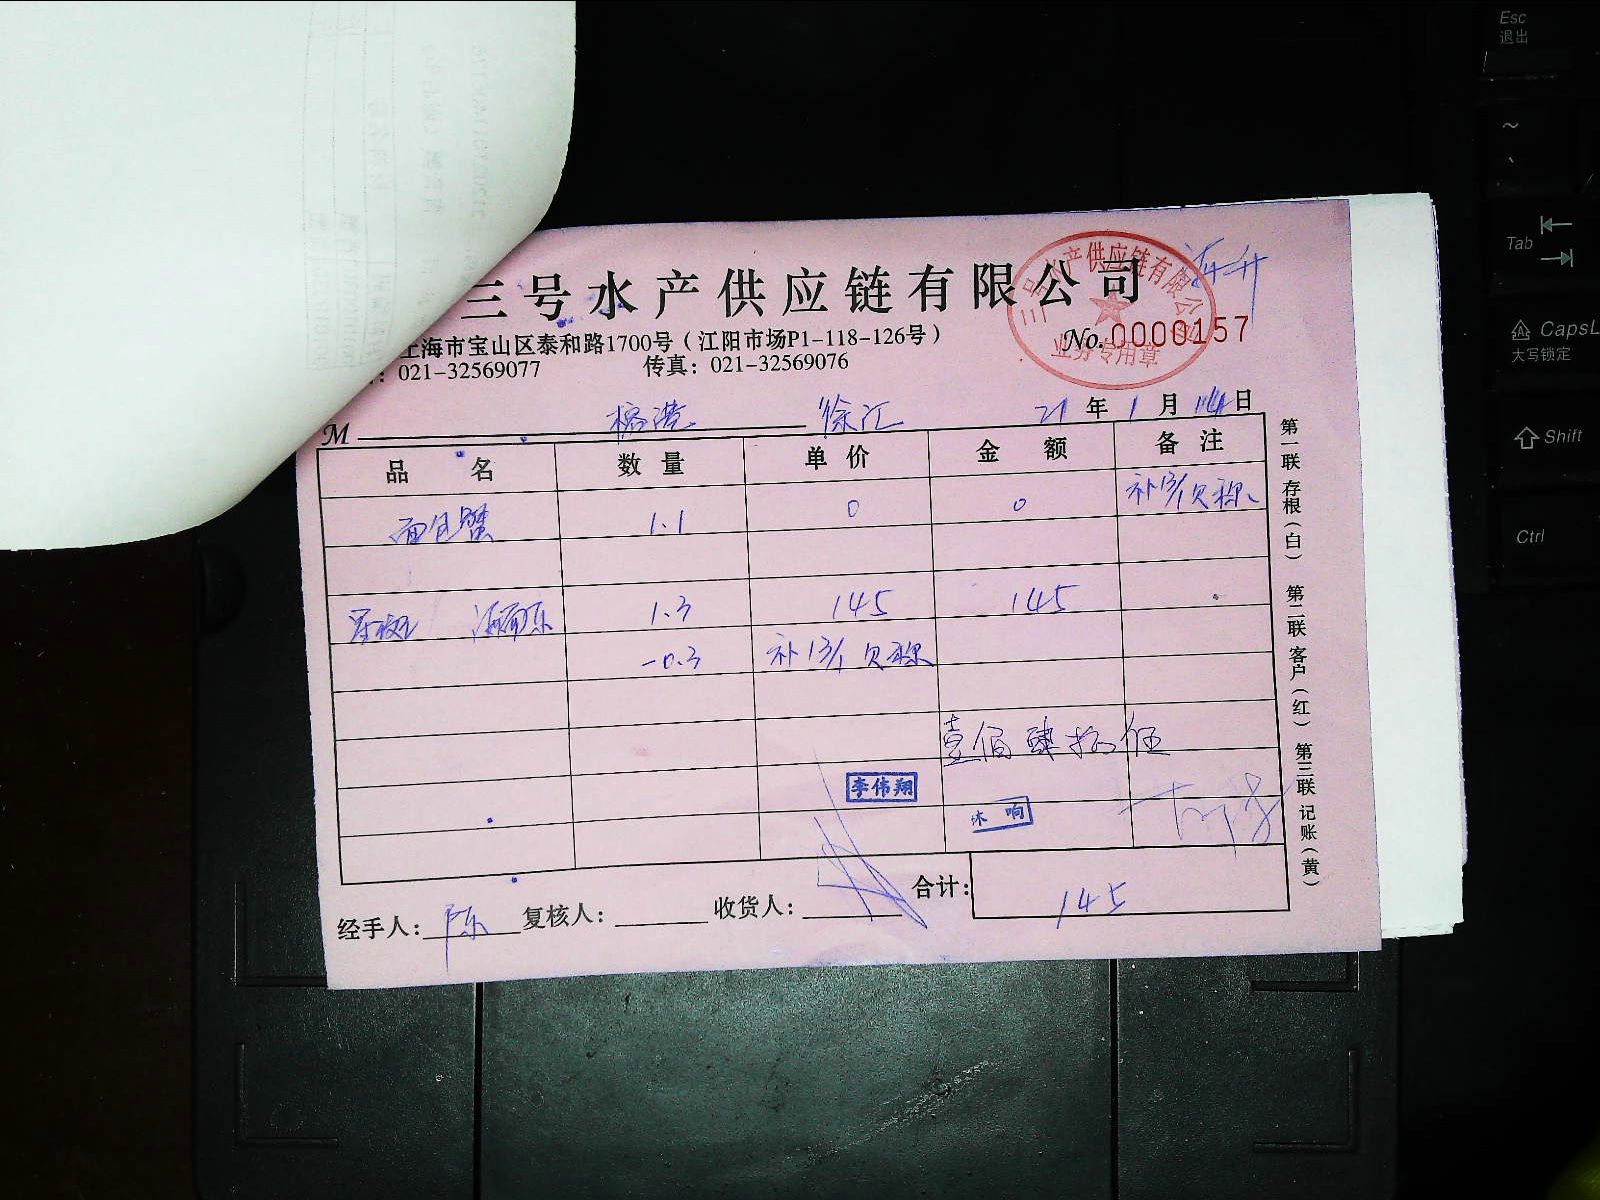 三号水产供应链有限公司
上海市宝山区泰和路1700号（江阳市场P1-118-126号）
：021-32569077 传真：021-32569076
三号水产供应链有限公司
业务专用章
No.0000157
M 徐汇 21年1月14日
品名 数量 单价 金额 备注
面包蟹 1.1 0 0 补13/1欠称
1.3 145 145
-0.3 补13/1欠称
壹佰肆拾伍
李伟翔
经手人：陈 复核人： 收货人： 合计：145
第一联存根（白） 第二联客户（红） 第三联记账（黄）
Esc
退出
~
Tab
CapsL
大写锁定
Shift
Ctrl